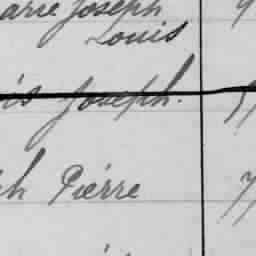 arie Joseph
Louis
is Joseph.
ch Piérre